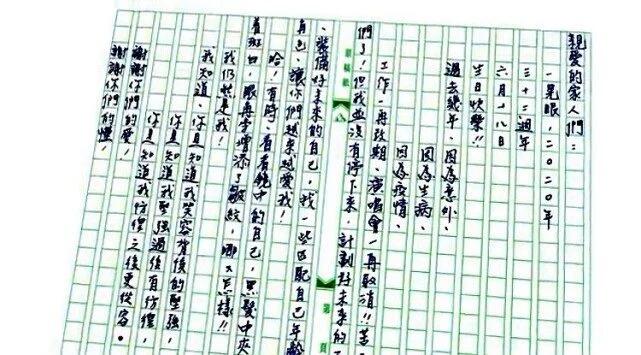 親愛的家人們：
一晃眼，二〇二〇年
三十二週年
六月十八日
生日快樂!!
過去幾年，因為意外、
因為生病、
因為疫情、
工作一再改期、演唱會一再取消!!苦
們了！但我並沒有停下來，計劃好未來的
、裝備好未來的自己，我一些匹配自己年齡
再色、讓你們越來越愛我！
哈！有時，看看鏡中的自己，黑髮中夾
著斑白，眼尾又增添了皺紋，哪又怎樣!!
我仍然是我！
我知道、你真知道我笑容背後的堅強，
你真知道我堅強過後有彷徨，
你真知道我彷徨之後更從容。
謝謝你們的愛！
謝謝你們的懂！
稿紙
第 頁